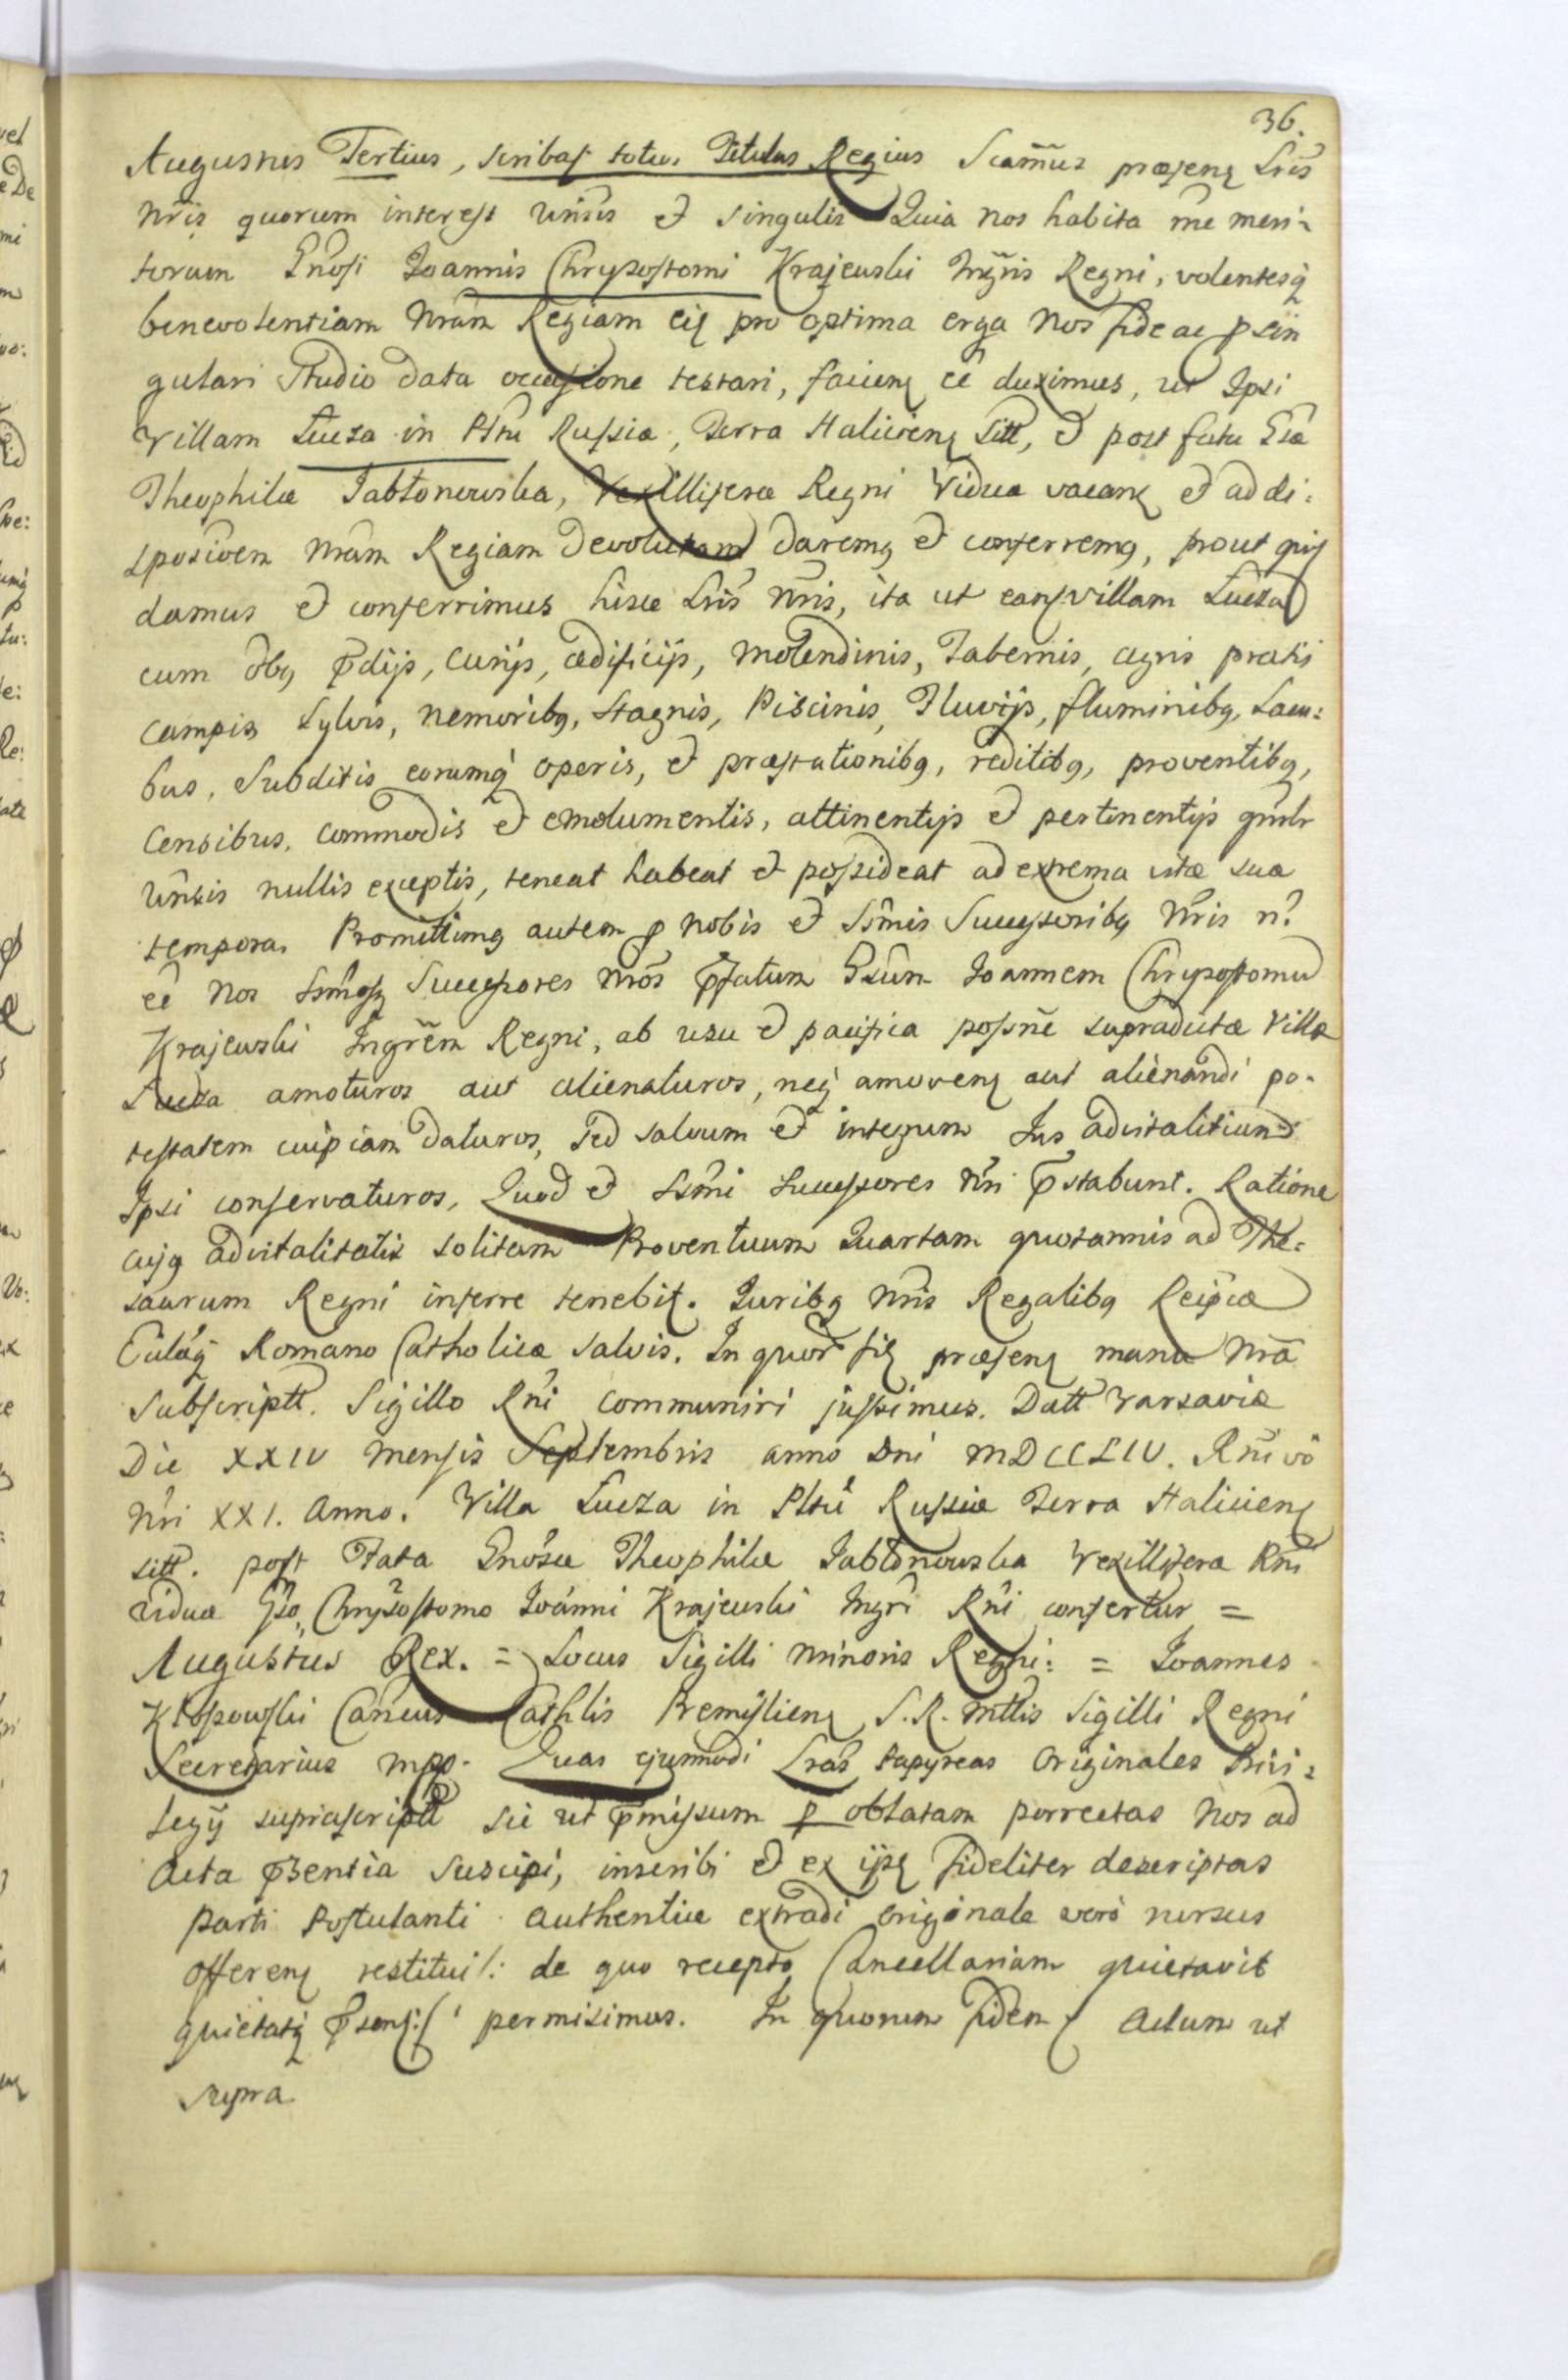 36.
Augustus Tertius, scribat totus Titulus Regius Scamus præsen Lris
Nris quorum interest Unsis et singulis Quia nos habita rne meri-
torum Gnosi Joannis Chrysostomi Krajewski Ingris Regni, volentesq
benevolentiam Nram Regiam eis pro optima erga Nos fide ac p sin
gulari Studio data occasione testari, facien ee duximus, ut Ipsi
Villam Łucza in Pltu Russiæ, Terra Halicien Sitt, et post fata Gsæ
Theophilæ Jabłonowska, Vexilliferæ Regni Viduæ vacan et ad di:
sposioem Nram Regiam devolutam daremq et conferremq, prout qui
damus et conferrimus hisce Lris Nris, ita ut eans villam Łucza
cum obq pdijs, curijs, ædificijs, molendinis, Tabernis, agris pratis
campis Sylvis, nemoribq, Stagnis, Piscinis, Fluvijs, fluminibq, Lacu:
bus, Subditis eorumq operis, et præstationibq, reditibq, proventibq,
Censibus, commodis et emolumentis, attinentijs et pertinentijs gnrlr
Unsis nullis exceptis, teneat habeat et possideat ad extrema vitæ suæ
tempora. Promittimq autem p nobis et Ssmis Successoribq Nris n.
ee Nos Ssmosq Successores Nros pfatum Gsum Joannem Chrysostomu
Krajewski Ingrem Regni, ab usu et pacifica possne supradictæ Villæ
Łucza amoturos aut alienaturos, neq amoven aut alienandi po-
testatem cuipiam daturos, sed salvum et integrum Jus advitalitium
Ipsi conservaturos, Quod et Ssmi Successores Nri pstabunt. Ratione
cujq advitalitatis solitam Proventuum Quartam quotannis ad The:
saurum Regni inferre tenebit. Juribq Nris Regalibq Reipcæ
Eclæq Romano Catholicæ salvis. In quor fid præsen manu Nra
subscriptt. Sigillo Rni communiri jussimus. Datt Varsaviæ
Die XXIV Mensis Septembris anno Dni MDCCLIV. Rni vo
Nri XXI. Anno. Villa Łucza in Pltu Russiæ Terra Halicien
sitt. post Fata Gnosæ Theophilæ Jabłonowska Vexilliferæ Rni
viduæ Gso, Chrysostomo Joanni Krajewski Ingri Rni confertur =
Augustus Rex. = Locus Sigilli Minoris Regni: = Joannes
Kłopowski Cancus Cathlis Premislien S. R. Mttis Sigilli Regni
Secretarius mpp. Quas ejusmodi Lras papyreas Originales Privi:
legij suprascriptt sic ut pmissum p oblatam porrectas Nos ad
Acta psentia Suscipi, inscribi et ex ijs fideliter descriptas
parti Postulanti authentice extradi originale vero rursus
Offeren restitui /: de quo recepto Cancellariam quietavit
quietatq psens:/ permisimus. In quorum fidem Actum ut
supra